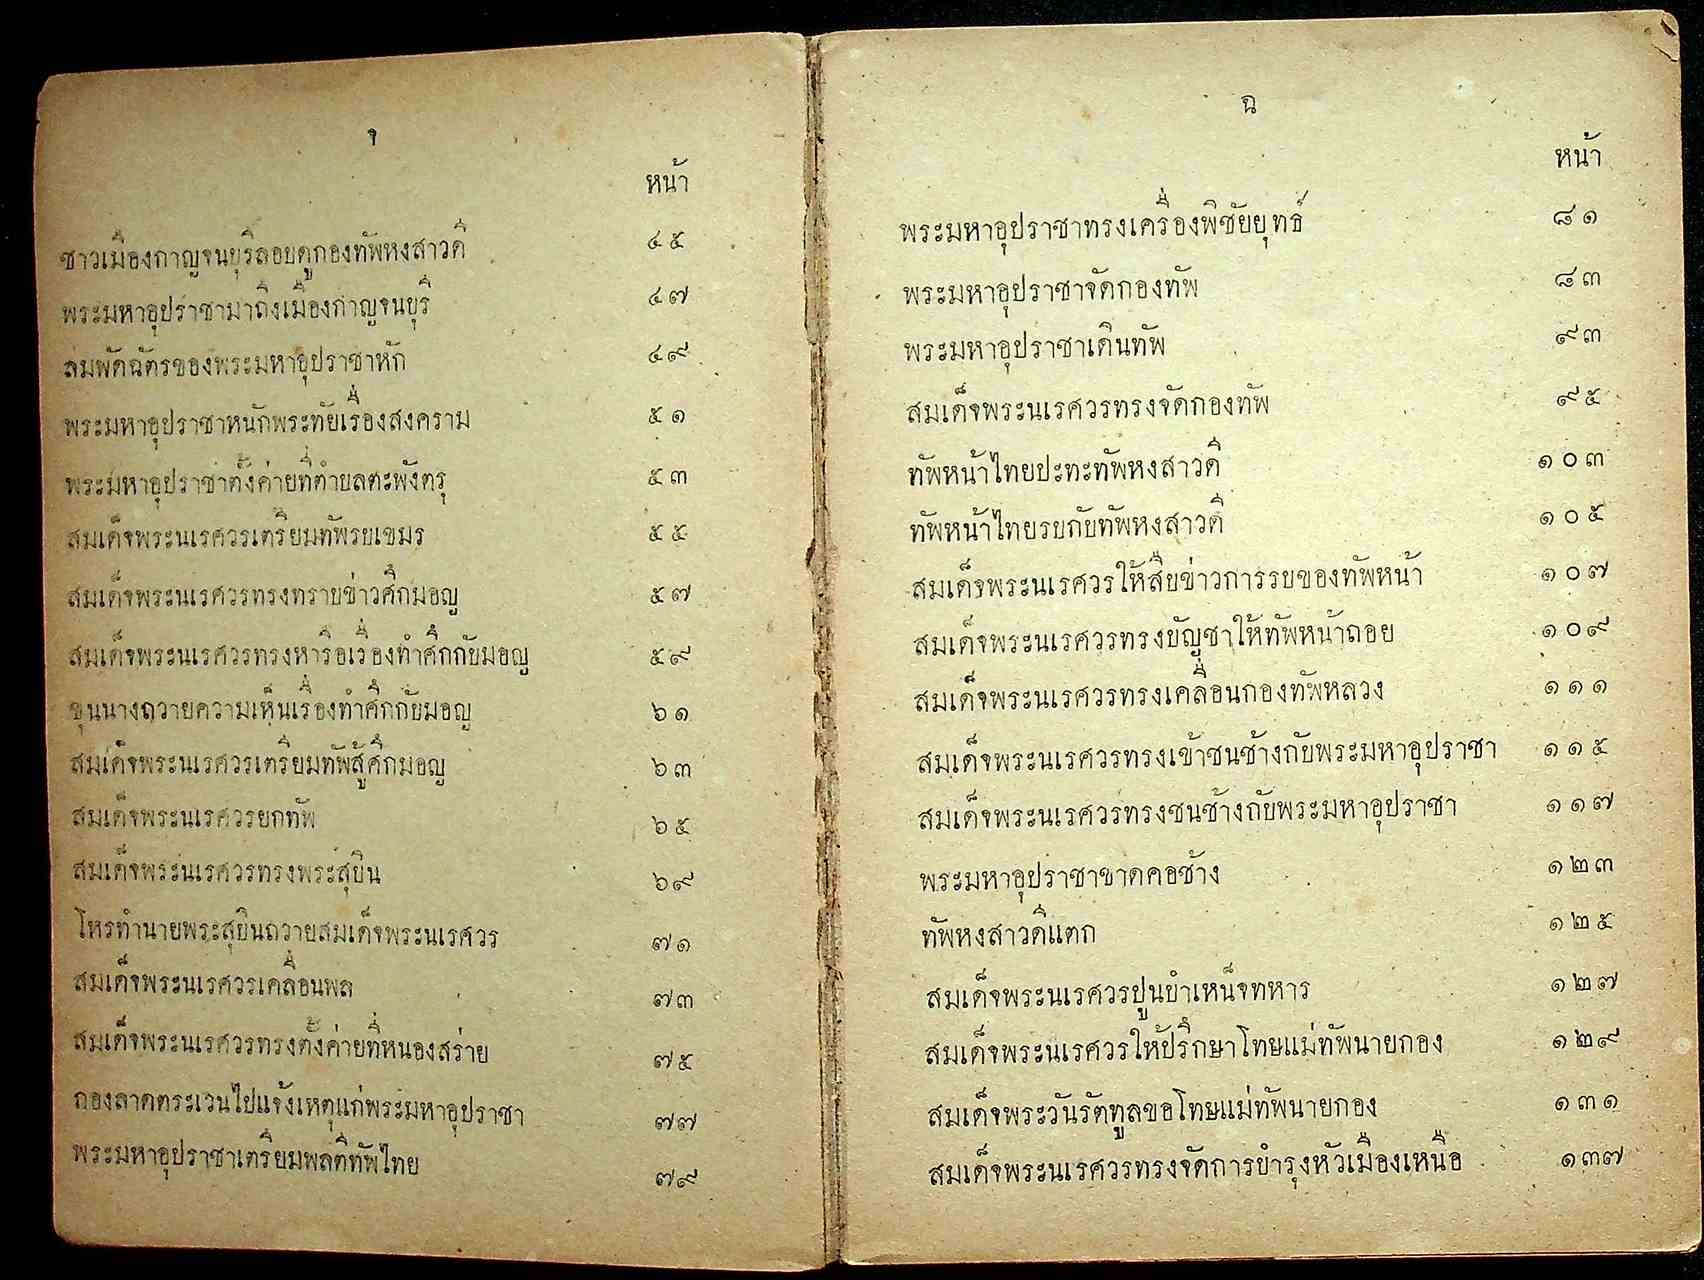 จ
หน้า
ชาวเมืองกาญจนบุรีลอบดูกองทัพหงสาวดี ๔๕
พระมหาอุปราชามาถึงเมืองกาญจนบุรี ๔๗
ลมพัดฉัตรของพระมหาอุปราชาหัก ๔๙
พระมหาอุปราชาหนักพระทัยเรื่องสงคราม ๕๑
พระมหาอุปราชาตั้งค่ายที่ตำบลตะพังตรุ ๕๓
สมเด็จพระนเรศวรเตรียมทัพรบเขมร ๕๕
สมเด็จพระนเรศวรทรงทราบข่าวศึกมอญ ๕๗
สมเด็จพระนเรศวรทรงหารือเรื่องทำศึกกับมอญ ๕๙
ขุนนางถวายความเห็นเรื่องทำศึกกับมอญ ๖๑
สมเด็จพระนเรศวรเตรียมทัพสู้ศึกมอญ ๖๓
สมเด็จพระนเรศวรยกทัพ ๖๕
สมเด็จพระนเรศวรทรงพระสุบิน ๖๙
โหรทำนายพระสุบินถวายสมเด็จพระนเรศวร ๗๑
สมเด็จพระนเรศวรเคลื่อนพล ๗๓
สมเด็จพระนเรศวรทรงตั้งค่ายที่หนองสร่าย ๗๕
กองลาดตระเวนไปแจ้งเหตุแก่พระมหาอุปราชา ๗๗
พระมหาอุปราชาเตรียมพลตีทัพไทย ๗๙
ฉ
หน้า
พระมหาอุปราชาทรงเครื่องพิชัยยุทธ์ ๘๑
พระมหาอุปราชาจัดกองทัพ ๘๓
พระมหาอุปราชาเดินทัพ ๙๓
สมเด็จพระนเรศวรทรงจัดกองทัพ ๙๕
ทัพหน้าไทยปะทะทัพหงสาวดี ๑๐๓
ทัพหน้าไทยรบกับทัพหงสาวดี ๑๐๕
สมเด็จพระนเรศวรให้สืบข่าวการรบของทัพหน้า ๑๐๗
สมเด็จพระนเรศวรทรงบัญชาให้ทัพหน้าถอย ๑๐๙
สมเด็จพระนเรศวรทรงเคลื่อนกองทัพหลวง ๑๑๑
สมเด็จพระนเรศวรทรงเข้าชนช้างกับพระมหาอุปราชา ๑๑๕
สมเด็จพระนเรศวรทรงชนช้างกับพระมหาอุปราชา ๑๑๗
พระมหาอุปราชาขาดคอช้าง ๑๒๓
ทัพหงสาวดีแตก ๑๒๕
สมเด็จพระนเรศวรปูนบำเหน็จทหาร ๑๒๗
สมเด็จพระนเรศวรให้ปรึกษาโทษแม่ทัพนายกอง ๑๒๙
สมเด็จพระวันรัตทูลขอโทษแม่ทัพนายกอง ๑๓๑
สมเด็จพระนเรศวรทรงจัดการบำรุงหัวเมืองเหนือ ๑๓๗